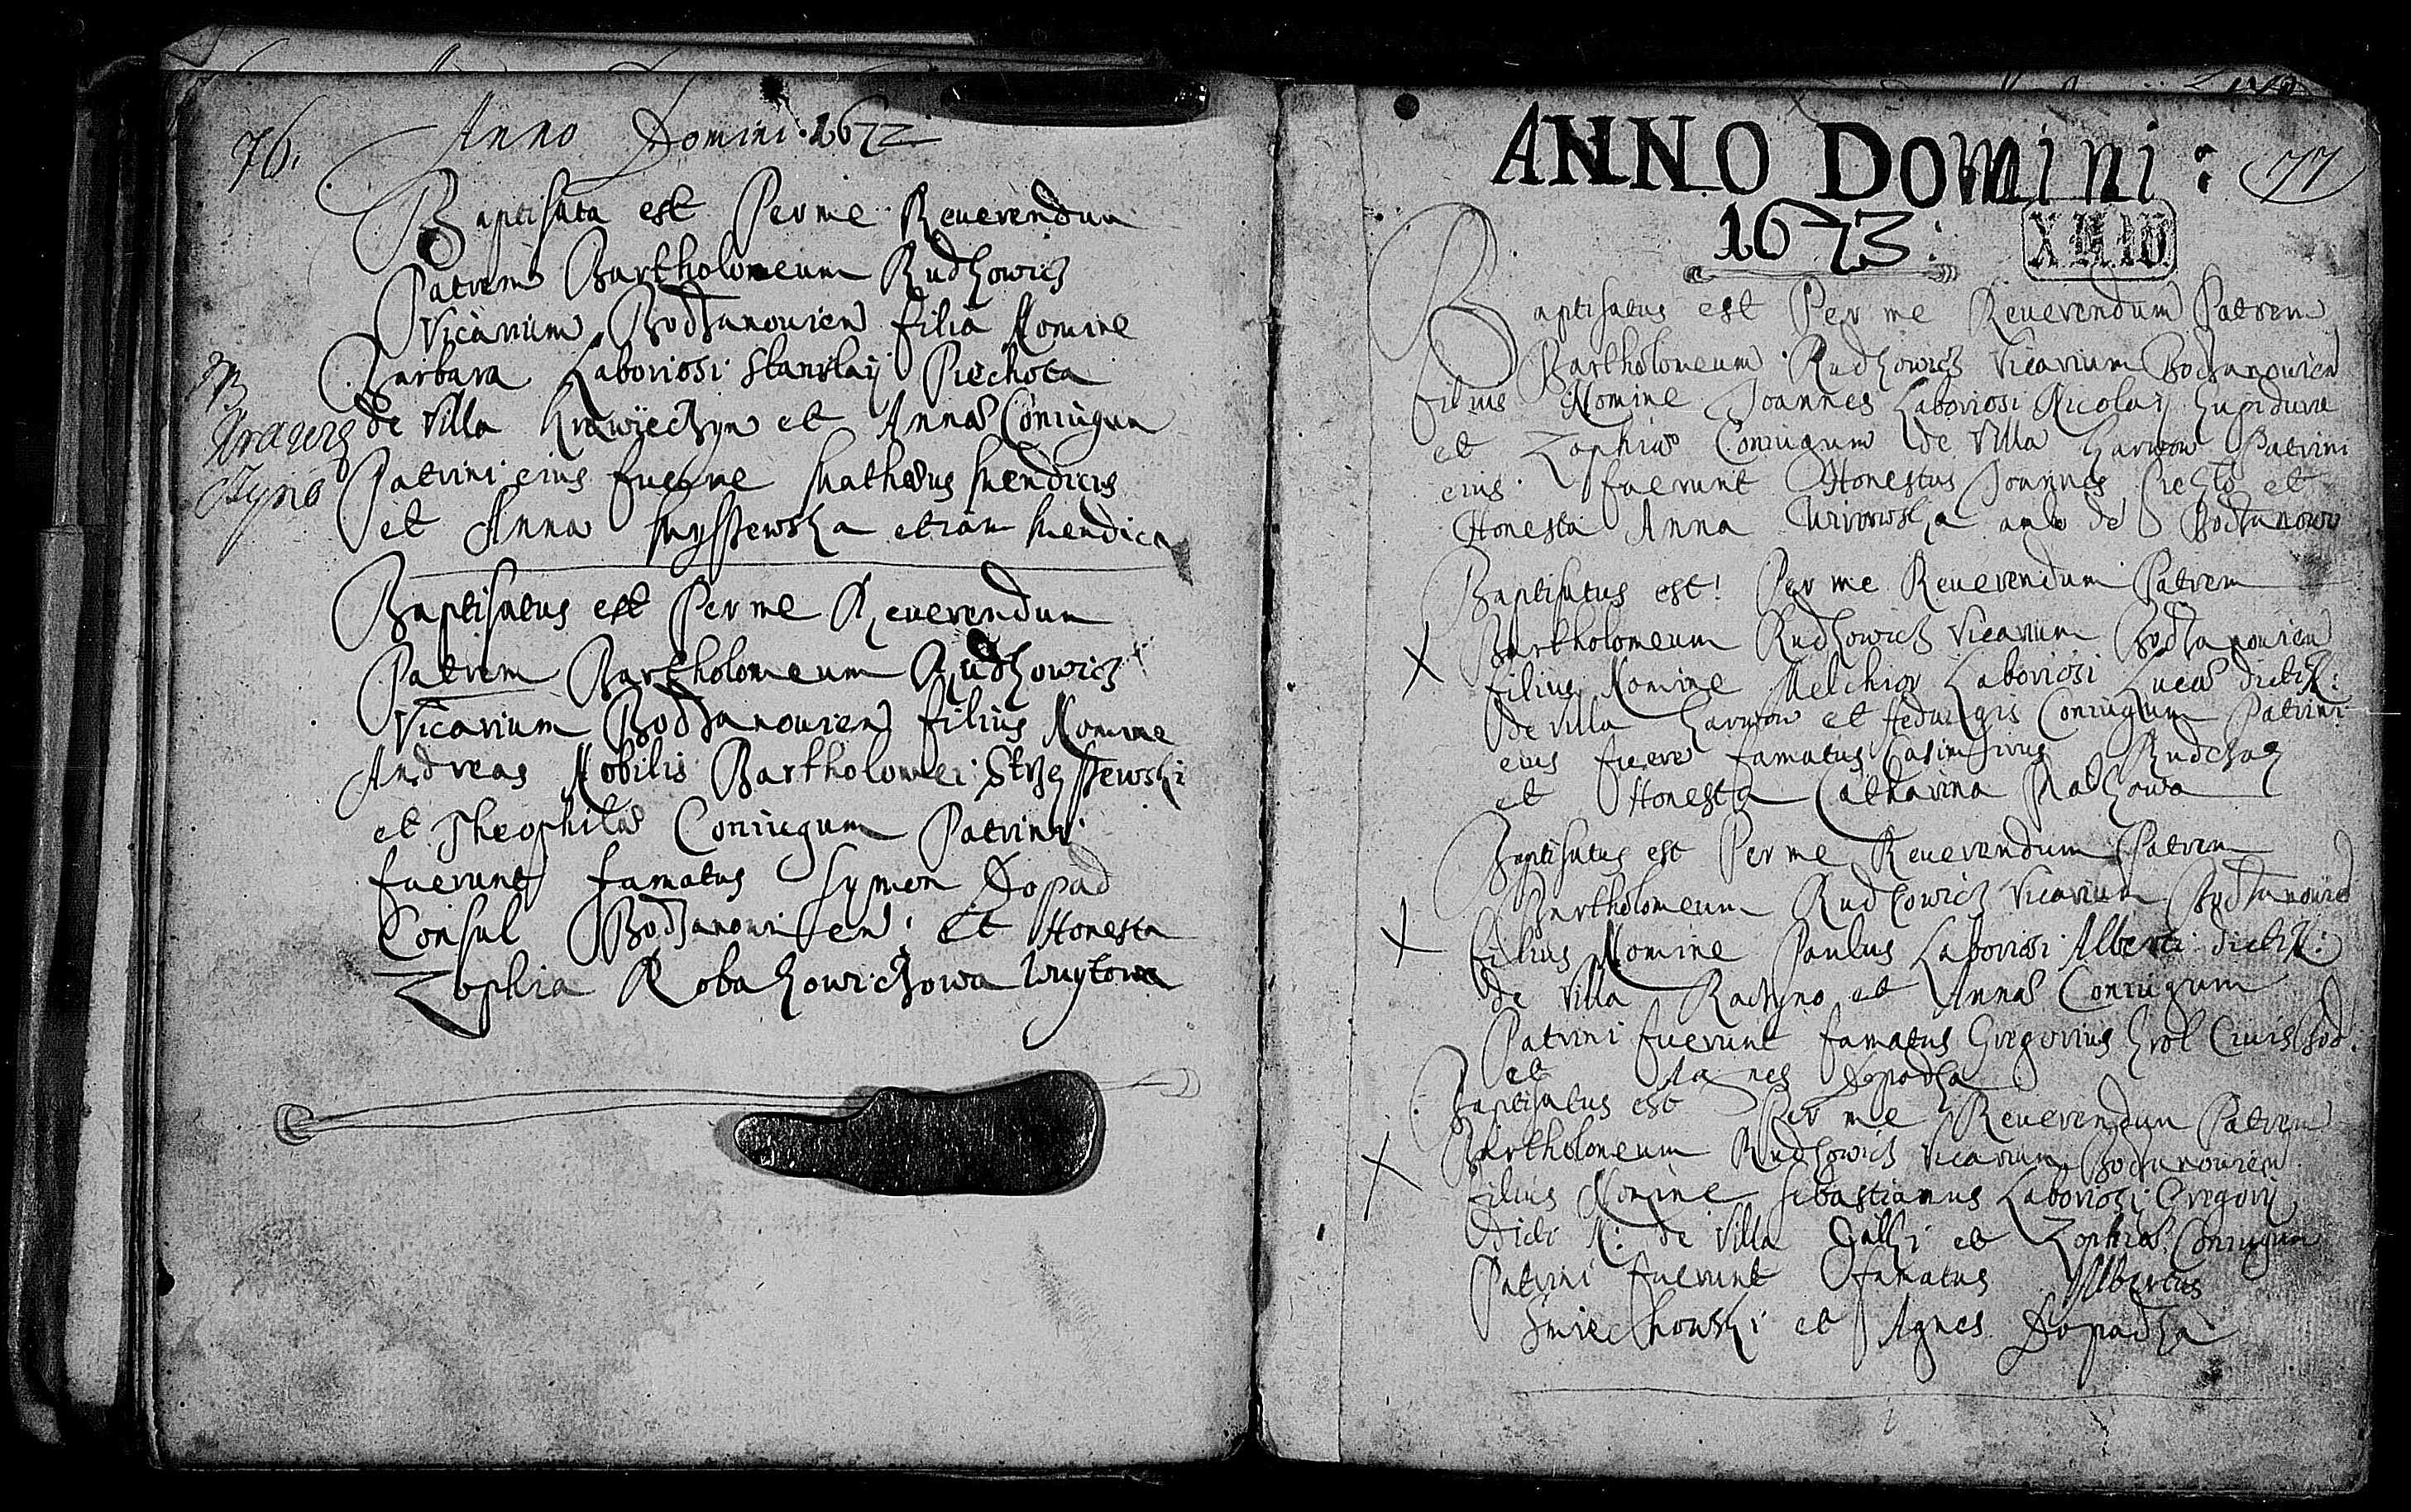 76.
Anno Domini 1672
Baptisata est Per me Reuerendum
Patrem Bartholomeum Rudkowicz
Vicarium Bodzanouien filia Nomine
Barbara Laboriosi Stanislaij Piechota
de Villa Krawieczyn et Anna Coniugum
Patrini eius fuere Mathæus Mendicus
et Anna Myssewska etiam Mendica
Baptisatus est Per me Reuerendum
Patrem Bartholomeum Rudkowicz
Vicarium Bodzanouien filius Nomine
Andreas Nobilis Bartholomei
et Theophila Coniugum Patrini
fuerunt famatus Symon Dopad
Consul et Honesta
Zophia Robakowiczowa Wuytowa
ANNO DOMINI :
77
1673 :
Baptisatus est Per me Reuerendum Patrem
Bartholomeum Rudkowicz Vicarium Bodzanouien
filius Nomine Joannes Laboriosi Nicolaij
et Zophia Coniugum de Villa Patrini
eius fuerunt Honestus Joannes et
Honesta Anna de
Baptisatus est! Per me Reuerendum Patrem
X Bartholomeum Rudkowicz Vicarium Bodzanouien
filius Nomine Melchior Laboriosi Lucæ dicti N:
de Villa et Heduigis Coniugum Patrini
eius fuere famatus Casimirus
et Honesta Catharina
Baptisatus est Per me Reuerendum Patrem
X Bartholomeum Rudkowicz Vicarium Bodzanouien
filius Nomine Paulus Laboriosi Alberti dicti N:
de Villa et Anna Coniugum
Patrini fuerunt famatus Gregorius Krol Ciuis Bod.
et Agnes Dopadka
Baptisatus est Per me Reuerendum Patrem
X Bartholomeum Rudkowicz Vicarium Bodzanouien
filius Nomine Sebastianus Laboriosi Gregorij
dicti N: de Villa et Zophia Coniugum
Patrini fuerunt famatus Albertus
Smiechowski et Agnes Dopadka